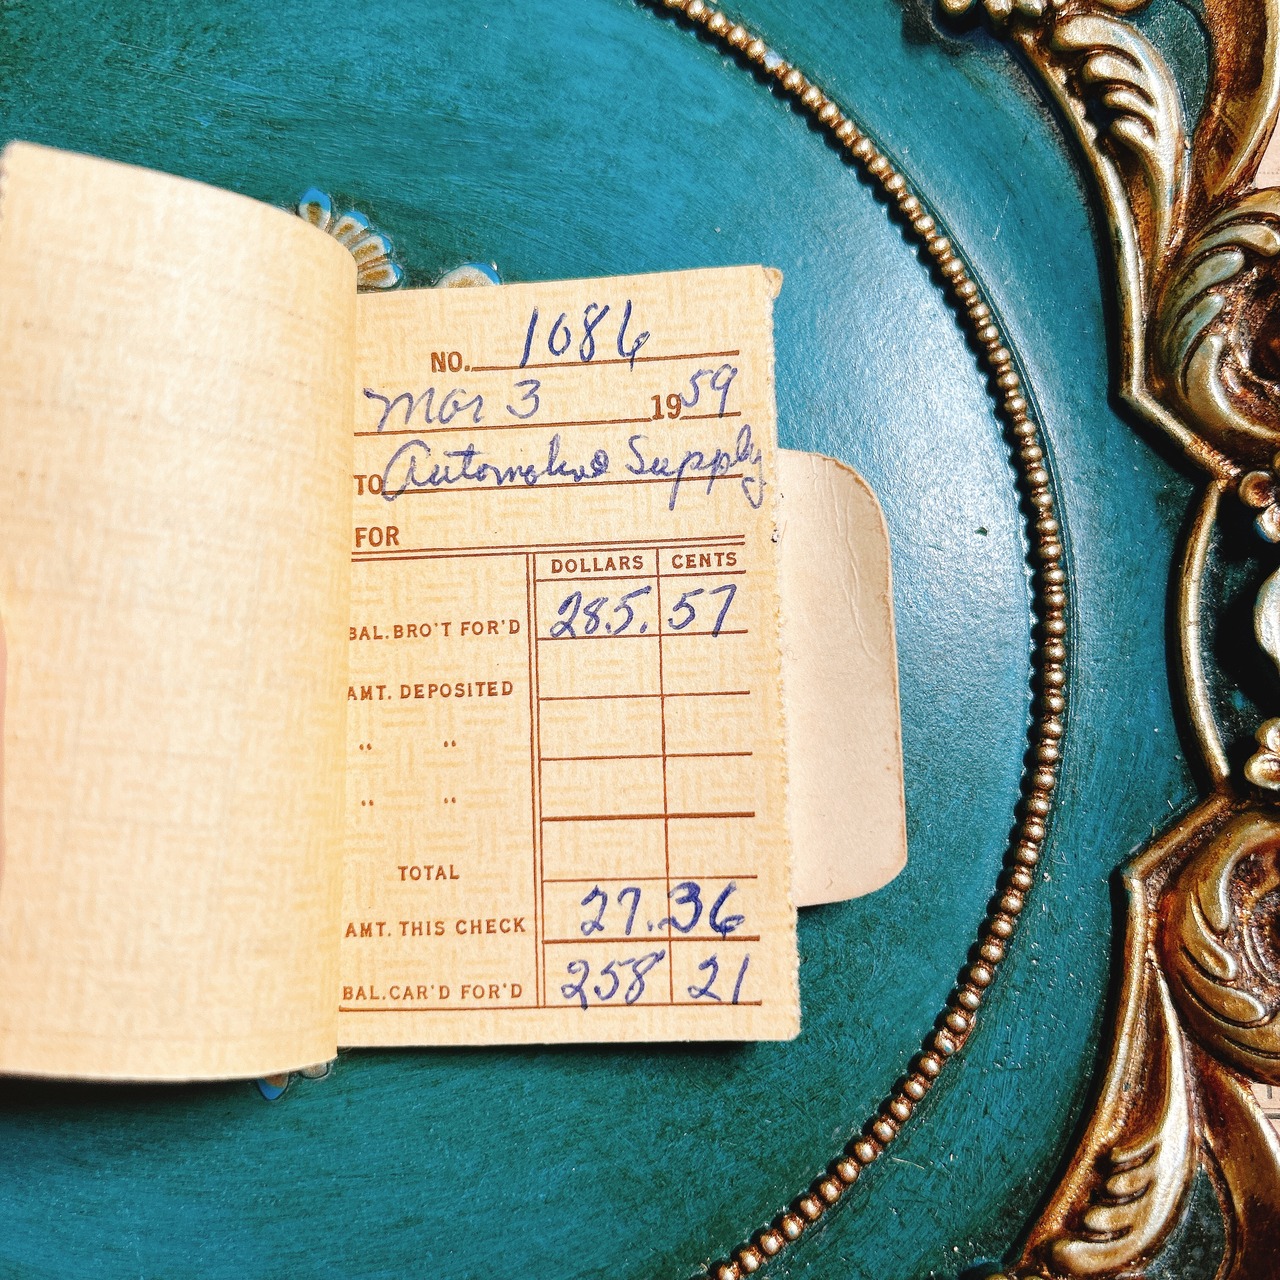 NO. 1086
Mar 3 1959
TO Automotive Supply
FOR
DOLLARS CENTS
BAL. BRO'T FOR'D 285. 57
AMT. DEPOSITED
" "
" "
TOTAL
AMT. THIS CHECK 27. 36
BAL. CAR'D FOR'D 258 21